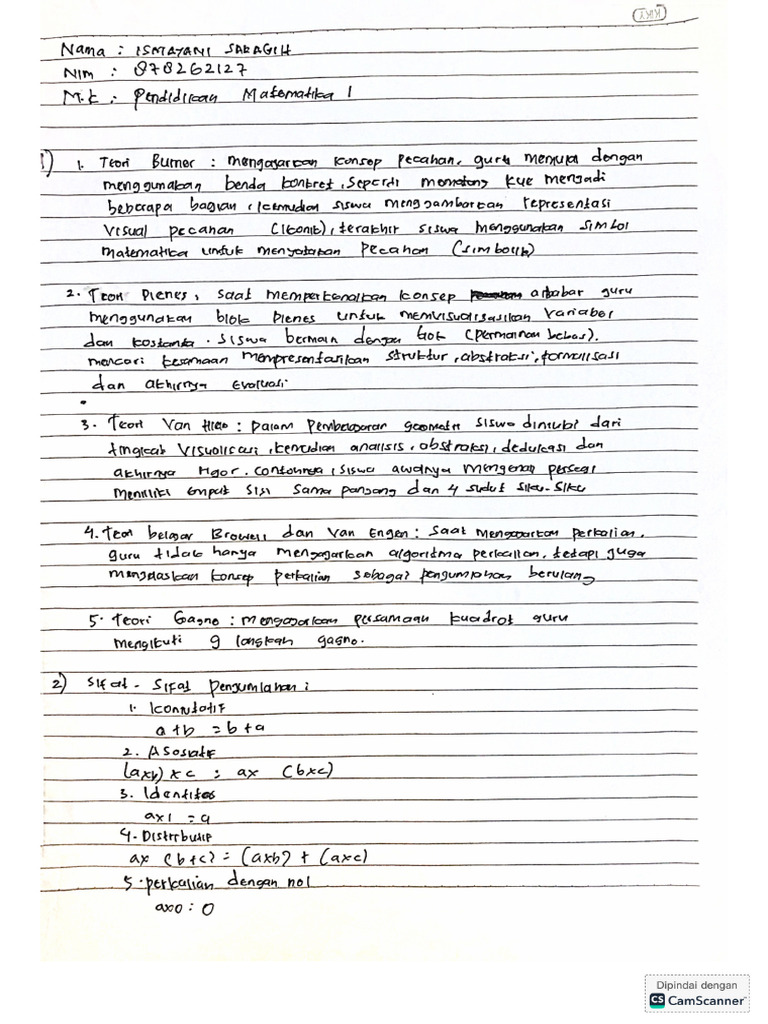 KIKY
Nama : ISMAYANI SARAGIH
NIM : 878262127
M.K : Pendidikan Matematika 1
1) 1. Teori Burner : mengajarkan konsep pecahan, guru memulai dengan
menggunakan benda konkret, seperti memotong kue menjadi
beberapa bagian, kemudian siswa menggambarkan representasi
visual pecahan (Ikonik), terakhir siswa menggunakan simbol
matematika untuk menyatakan pecahan (simbolik)
2. Teori Dienes, saat memperkenalkan konsep aljabar guru
menggunakan blok Dienes untuk memvisualisasikan variabel
dan kostanta. siswa bermain dengan blok (permainan bebas).
mencari kesamaan mempresentasikan struktur, abstraksi, formalisasi
dan akhirnya evaluasi
3. Teori Van Hiele : Dalam pembelajaran geometri siswa dimulai dari
tingkat visualisasi, kemudian analisis, abstraksi, dedukasi dan
akhirnya rigor. contohnya, siswa awalnya mengenal persegi
memiliki empat sisi sama panjang dan 4 sudut siku-siku
4. Teori belajar Browell dan Van Engen : saat mengajarkan perkalian,
guru tidak hanya mengajarkan algoritma perkalian, tetapi juga
menjelaskan konsep perkalian sebagai pengumlahan berulang
5. Teori Gagno : mengajarkan persamaan kuadrat guru
mengikuti 9 langkah gagno.
2) Sifat - Sifat pengumlahan :
1. Komutatif
a+b = b+a
2. Asosiatif
(axb) x c = ax (bxc)
3. Identitas
ax1 = a
4. Distributif
ax (b+c) = (axb) + (axc)
5. perkalian dengan nol
ax0 : 0
Dipindai dengan
CS CamScanner